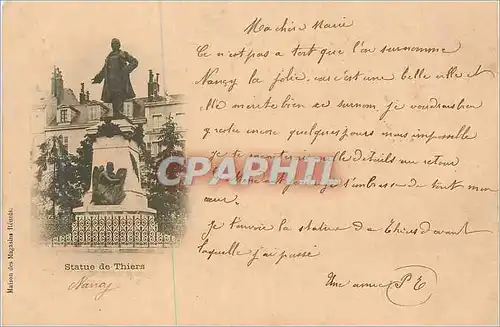 Ma chère Marie
Ce n'est pas a tort que l'on surnomme
Nancy la jolie, car c'est une belle ville et
elle mérite bien ce surnom je voudrais bien
y rester encore quelques jours mais impossible
Je te details au retour
CAPHIL
je t'embrasse de tout mon
cœur.
Je t'envoie la statue de Thiers devant
laquelle j'ai passé
Une amie P E
Statue de Thiers
Nancy
Maison des Magasins Réunis.